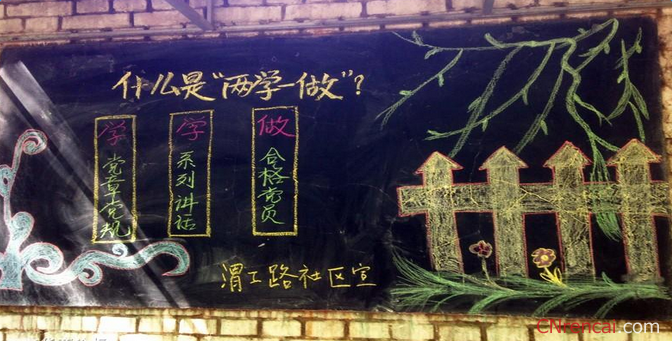 什么是“两学一做”？
学 党章党规
学 系列讲话
做 合格党员
渭工路社区宣
CNrencai.com